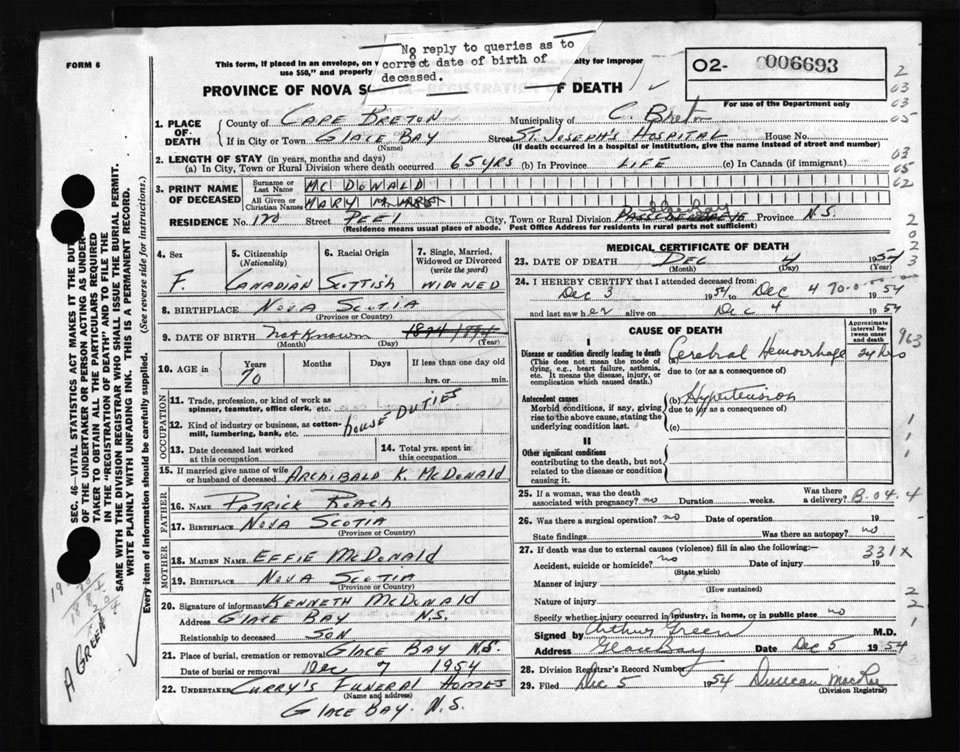 FORM 6
This form, if placed in an envelope, on
use $50," and properly
alty for improper
No reply to queries as to
correct date of birth of
deceased.
O2- 006693
For use of the Department only
PROVINCE OF NOVA S F DEATH
1. PLACE OF DEATH
County of CAPE BRETON Municipality of C. Breton
If in City or Town GLACE BAY Street ST. JOSEPH'S HOSPITAL House No.
(Name) (If death occurred in a hospital or institution, give the name instead of street and number)
2. LENGTH OF STAY (in years, months and days)
(a) In City, Town or Rural Division where death occurred 65 YRS (b) In Province LIFE (c) In Canada (if immigrant)
3. PRINT NAME OF DECEASED
Surname or Last Name MCDONALD
All Given or Christian Names MARY M.
RESIDENCE No. 120 Street PEEL City, Town or Rural Division Glace Bay Province N.S.
(Residence means usual place of abode. Post Office Address for residents in rural parts not sufficient)
4. Sex F.
5. Citizenship (Nationality) CANADIAN
6. Racial Origin SCOTTISH
7. Single, Married, Widowed or Divorced (write the word) WIDOWED
8. BIRTHPLACE NOVA SCOTIA
(Province or Country)
9. DATE OF BIRTH not known 1874 1884
(Month) (Day) (Year)
10. AGE in Years 70 Months Days If less than one day old
hrs. or min.
OCCUPATION
11. Trade, profession, or kind of work as
spinner, teamster, office clerk, etc.
12. Kind of industry or business, as cotton-
mill, lumbering, bank, etc. HOUSE DUTIES
13. Date deceased last worked at this occupation
14. Total yrs. spent in this occupation
15. If married give name of wife
or husband of deceased ARCHIBALD K. McDONALD
FATHER
16. NAME PATRICK ROACH
17. BIRTHPLACE NOVA SCOTIA
(Province or Country)
MOTHER
18. MAIDEN NAME EFFIE McDONALD
19. BIRTHPLACE NOVA SCOTIA
(Province or Country)
20. Signature of informant KENNETH McDONALD
Address GLACE BAY N.S.
Relationship to deceased SON
21. Place of burial, cremation or removal GLACE BAY N.S.
Date of burial or removal Dec 7 1954
22. UNDERTAKER CURRY'S FUNERAL HOMES
(Name and address)
GLACE BAY. N.S.
MEDICAL CERTIFICATE OF DEATH
23. DATE OF DEATH DEC 4 1954
(Month) (Day) (Year)
24. I HEREBY CERTIFY that I attended deceased from:
Dec 3 1954 to Dec 4 1954
and last saw her alive on Dec 4 1954
CAUSE OF DEATH
Approximate interval between onset and death
I
Disease or condition directly leading to death (a) Cerebral Hemorrhage 24 hrs
(This does not mean the mode of dying, e.g., heart failure, asthenia, etc. It means the disease, injury, or complication which caused death.)
due to (or as a consequence of)
Antecedent causes (b) Hypertension
Morbid conditions, if any, giving rise to the above cause, stating the underlying condition last.
due to (or as a consequence of)
(c)
II
Other significant conditions
contributing to the death, but not related to the disease or condition causing it.
25. If a woman, was the death
associated with pregnancy? no Duration weeks. Was there a delivery? B.04.4
26. Was there a surgical operation? no Date of operation 19
State findings Was there an autopsy? no
27. If death was due to external causes (violence) fill in also the following:— 331X
Accident, suicide or homicide? no Date of injury 19
(State which)
Manner of injury
(How sustained)
Nature of injury
Specify whether injury occurred in industry, in home, or in public place no
Signed by Arthur Green M.D.
Address Glace Bay Date Dec 5 1954
28. Division Registrar's Record Number
29. Filed Dec 5 1954 Duncan MacRae
(Division Registrar)
SEC. 46—VITAL STATISTICS ACT MAKES IT THE DU
OF THE UNDERTAKER OR PERSON ACTING AS UNDER-
TAKER TO OBTAIN ALL THE PARTICULARS REQUIRED
IN THE "REGISTRATION OF DEATH" AND TO FILE THE
SAME WITH THE DIVISION REGISTRAR WHO SHALL ISSUE THE BURIAL PERMIT.
WRITE PLAINLY WITH UNFADING INK. THIS IS A PERMANENT RECORD.
Every item of information should be carefully supplied. (See reverse side for instructions.)
A GREEN
2
03
03
05
03
05
02
2
0
2
3
963
1
1
1
2
2
1